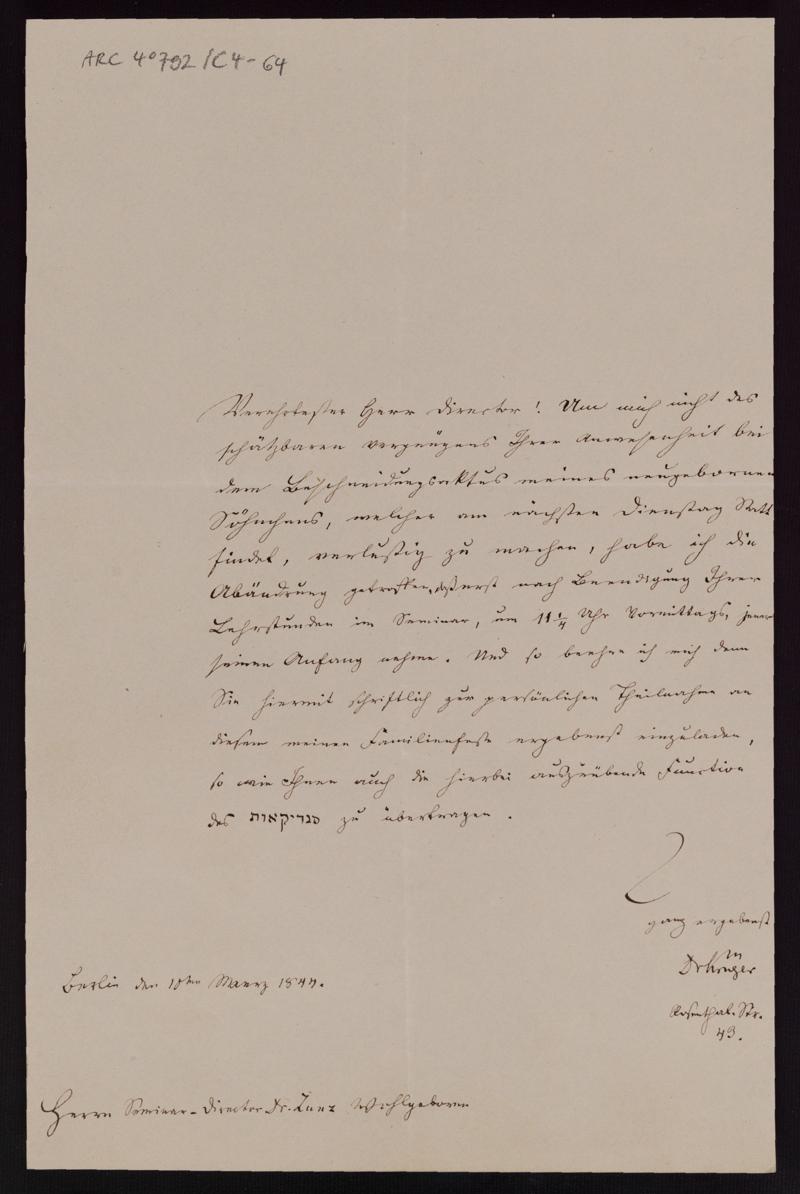 ARC 4° 792 / C4-64
Verehrtester Herr Director! Um mich nicht des
schätzbaren Vergnügens Ihrer Anwesenheit bei
dem Beschneidungsaktus meines neugebornen
Söhnchens, welcher am nächsten Dienstag Statt
findet, verlustig zu machen, habe ich die
Abändrung getroffen, daß erst nach Beendigung Ihrer
Lehrstunden im Seminar, um 11 1/4 Uhr Vormittags, jener
seinen Anfang nehme. Und so beehre ich mich denn
Sie hiermit schriftlich zur persönlichen Theilnahme an
diesem meinen Familienfeste ergebenst einzuladen,
so wie Ihnen auch die hierbei auszuübende Function
des סנדיקאות zu übertragen.
ganz ergebenst
Dr Krüger
Rosenthal. Str.
43.
Berlin den 10ten Maerz 1844.
Herrn Seminar-Director Dr. Zunz Wohlgeboren